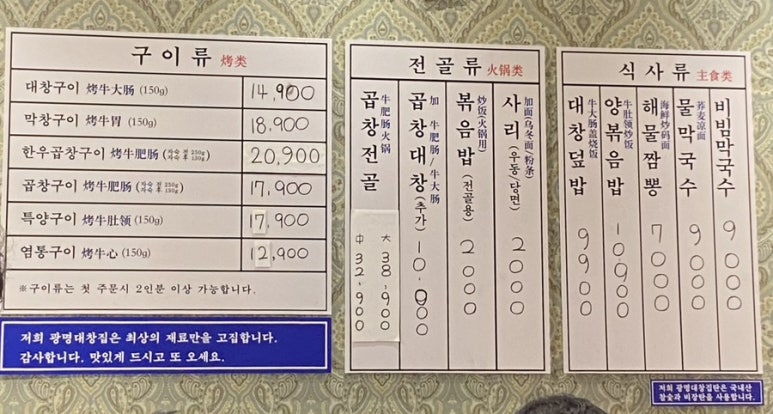 구이류 烤类
대창구이 烤牛大肠 (150g) 14,900
막창구이 烤牛胃 (150g) 18,900
한우곱창구이 烤牛肥肠 20,900
곱창구이 烤牛肥肠 17,900
특양구이 烤牛肚领 (150g) 17,900
염통구이 烤牛心 (150g) 12,900
※구이류는 첫 주문시 2인분 이상 가능합니다.
저희 광명대창집은 최상의 재료만을 고집합니다.
감사합니다. 맛있게 드시고 또 오세요.
전골류 火锅类
곱창전골 牛肥肠火锅 中 32,900 大 38,900
곱창대창(추가) 加 牛肥肠/牛大肠 10,900
볶음밥(전골용) 炒饭(火锅用) 2000
사리(우동/당면) 加面(乌冬面/粉条) 2000
식사류 主食类
대창덮밥 牛大肠盖烧饭 9900
양볶음밥 牛肚领炒饭 10,900
해물짬뽕 海鲜炒码面 7000
물막국수 荞麦凉面 9000
비빔막국수 9000
저희 광명대창집은 국내산
참숯과 비장탄을 사용합니다.